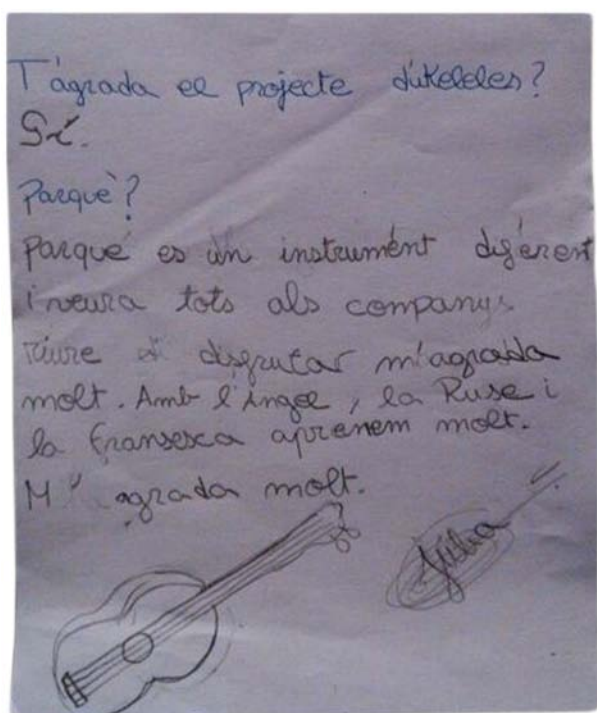 T'agrada el projecte d'ukeleles?
Sí.
Parquè?
parque es un instrumént diferent
i veura tots als companys
riure i disfrutar m'agrada
molt. Amb l'Angel, la Ruse i
la Fransesca aprenem molt.
M'agrada molt.
Júlia